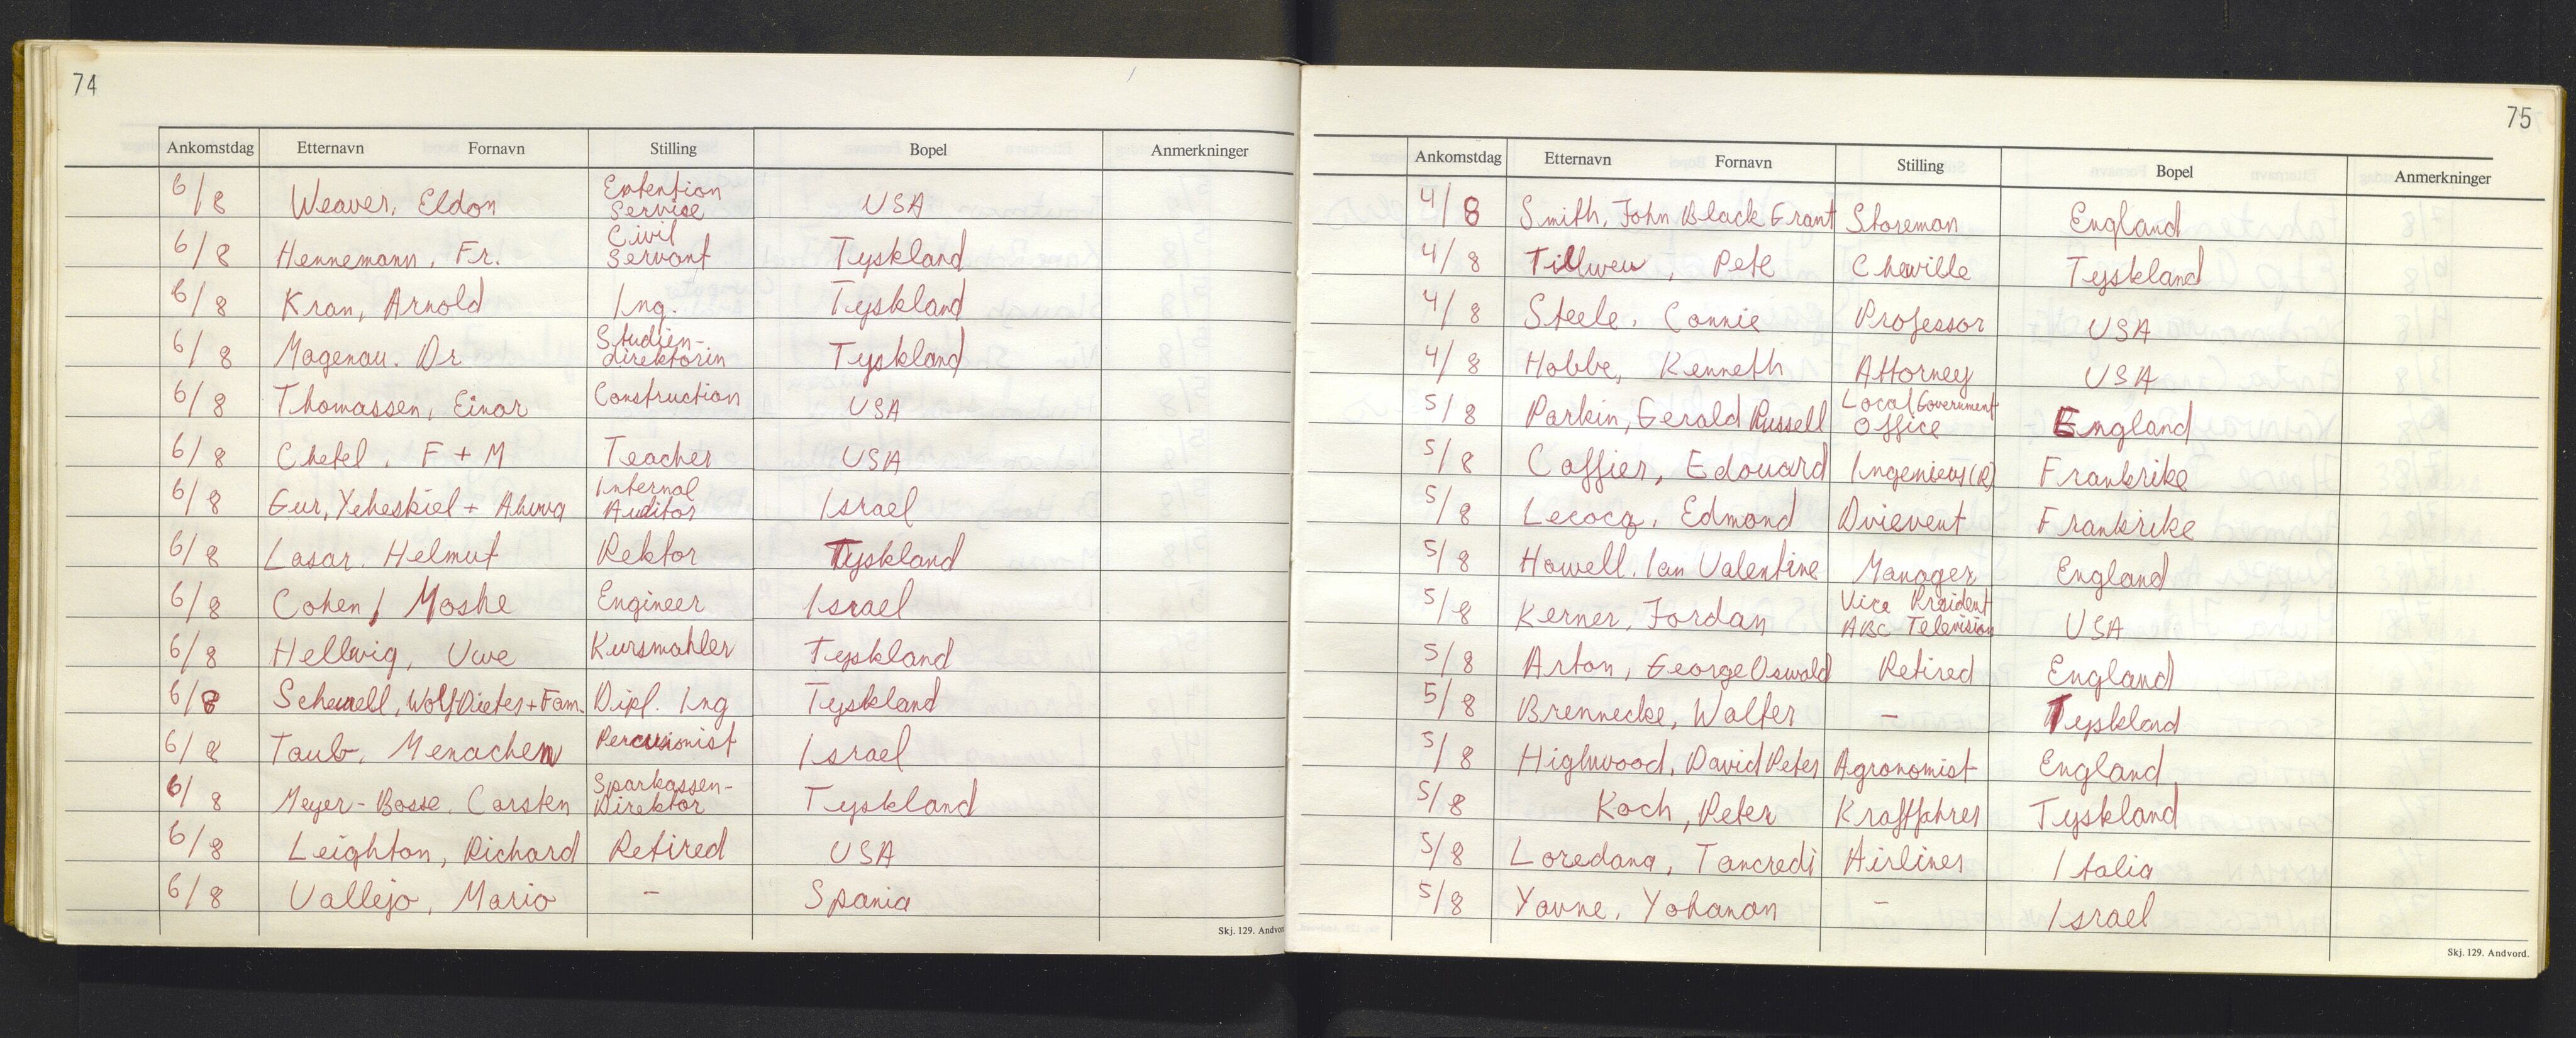 74
Ankomstdag Etternavn Fornavn Stilling Bopel Anmerkninger
6/8 Weaver, Eldon Extention Servise USA
6/8 Hennemann, Fr. Civil Servant Tyskland
6/8 Kran, Arnold Ing. Tyskland
6/8 Magenau. Dr Studien-direktorin Tyskland
6/8 Thomassen, Einar Construction USA
6/8 Chetel, F + M Teacher USA
6/8 Gur, Yeheskiel + Ahuva Internal Auditor Israel
6/8 Lasar. Helmut Rektor Tyskland
6/8 Cohen, Moshe Engineer Israel
6/8 Hellwig, Uwe Kursmahler Tyskland
6/8 Wolf Dieter + Fam. Dipl. Ing Tyskland
6/8 Taub, Menachem Percusionist Israel
6/8 Meyer-Bosse, Carsten Sparkassen-Direktor Tyskland
6/8 Leighton, Richard Retired USA
6/8 Vallejo, Mario - Spania
Skj. 129. Andvor
75
Ankomstdag Etternavn Fornavn Stilling Bopel Anmerkninger
4/8 Smith, John Black Grant Storeman England
4/8 Pete Tyskland
4/8 Steele, Connie Professor USA
4/8 Hobbe, Kenneth Attorney USA
5/8 Parkin, Gerald Russell Local Government Office England
5/8 Caffier, Edouard Ingenieur(R) Frankrike
5/8 Lecocq, Edmond Frankrike
5/8 Howell, Ian Valentine Manager England
5/8 Kerner, Jordan Vice Prsident ABC Television USA
5/8 Arton, George Oswald Retired England
5/8 Brennecke, Walter - Tyskland
5/8 Highwood, David Peter Agronomist England
5/8 Koch, Peter Kraftfahrer Tyskland
5/8 Loredana, Tancredi Airlines Italia
5/8 Yavne, Yohanan - Israel
Skj. 129. Andvord.